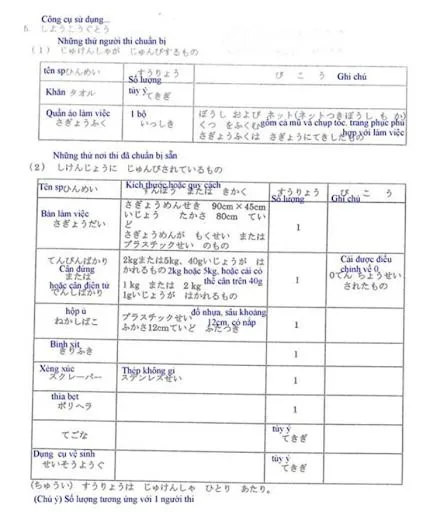 Công cụ sử dụng...
6. しようこうぐとう
Những thứ người thi chuẩn bị
(1) じゅけんしゃが じゅんびするもの
tên sp ひんめい すうりょう Số lượng びこう Ghi chú
Khăn タオル tùy ý てきぎ
Quần áo làm việc さぎょうふく 1 bộ いっしき ぼうし および ネット(ネットつきぼうし も か)
くつ をふくむ gồm cả mũ và chụp tóc. trang phục phù
さぎょうふくは さぎょうにてきしたもの hợp với làm việc
Những thứ nơi thi đã chuẩn bị sẵn
(2) しけんじょうに じゅんびされているもの
Tên sp ひんめい Kích thước hoặc quy cách すんぽう または きかく すうりょう Số lượng びこう Ghi chú
Bàn làm việc さぎょうだい さぎょうめんせき 90cm×45cm
いじょう たかさ 80cm てい
ど
さぎょうめんが もくせい または
プラスチックせい のもの
1
てんびんばかり
Cân đứng
または
hoặc cân điện tử
でんしばかり
2kgまたは5kg、40gいじょうが は
かれるもの 2kg hoặc 5kg, hoặc cái có
thể cân trên 40g
1kg または 2kg
1gいじょうが はかれるもの
1
Cái được điều
chỉnh về 0
0てん ちょうせい
されたもの
hộp ủ
ねかしばこ
プラスチックせい đồ nhựa, sâu khoảng
12cm, có nắp
ふかさ12cmていど ふたつき
1
Bình xịt
きりふき
1
Xẻng xúc
スクレーパー
Thép không gỉ
ステンレスせい
1
thìa bẹt
ポリヘラ
1
てごな
tùy ý
てきぎ
Dụng cụ vệ sinh
せいそうようぐ
tùy ý
てきぎ
(ちゅうい) すうりょうは じゅけんしゃ ひとり あたり。
(Chú ý) Số lượng tương ứng với 1 người thi